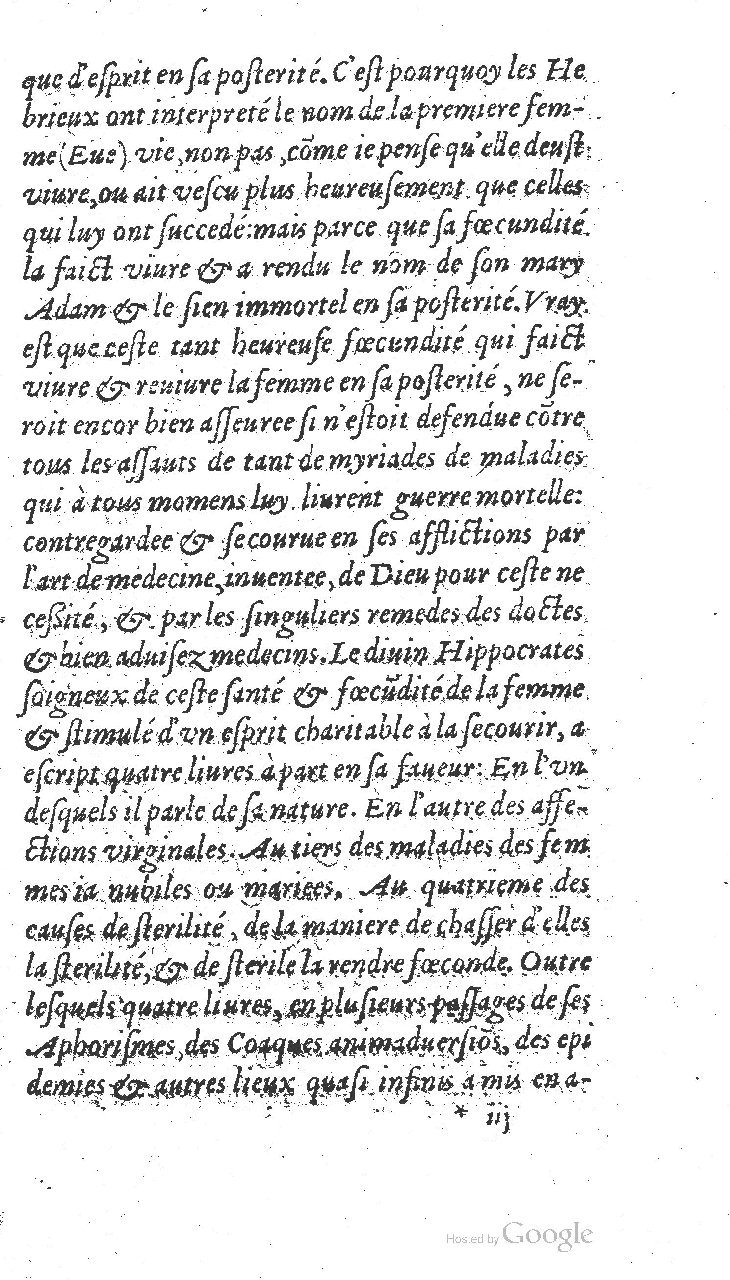 que d'eſprit en ſa poſterité. C'eſt pourquoy les He
brieux ont interpreté le nom de la premiere fem-
me (Eue) vie, non pas, cõme ie penſe qu'elle deuſt
viure, ou ait veſcu plus heureuſement que celles
qui luy ont ſuccedé: mais parce que ſa fœcundité
la faict viure & a rendu le nom de ſon mary
Adam & le ſien immortel en ſa poſterité. Vray
eſt que ceſte tant heureuſe fœcundité qui faict
viure & reuiure la femme en ſa poſterité, ne ſe-
roit encor bien aſſeuree ſi n'eſtoit defendue cõtre
tous les aſſauts de tant de myriades de maladies
qui à tous momens luy liurent guerre mortelle:
contregardee & ſecourue en ſes afflictions par
l'art de medecine, inuentee, de Dieu pour ceſte ne
ceſſité, & par les ſinguliers remedes des doctes
& bien aduiſez medecins. Le diuin Hippocrates
ſoigneux de ceſte ſanté & fœcũdité de la femme
& ſtimulé d'vn eſprit charitable à la ſecourir, a
eſcript quatre liures à part en ſa faueur: En l'vn
deſquels il parle de ſa nature. En l'autre des affe-
ctions virginales. Au tiers des maladies des fem
mes ia nubiles ou mariees. Au quatrieme des
cauſes de ſterilité, de la maniere de chaſſer d'elles
la ſterilité, & de ſterile la rendre fœconde. Outre
leſquels quatre liures, en pluſieurs paſſages de ſes
Aphoriſmes, des Coaques animaduerſiõs, des epi
demies & autres lieux quaſi infinis a mis en a-
* iij
Hosted by Google